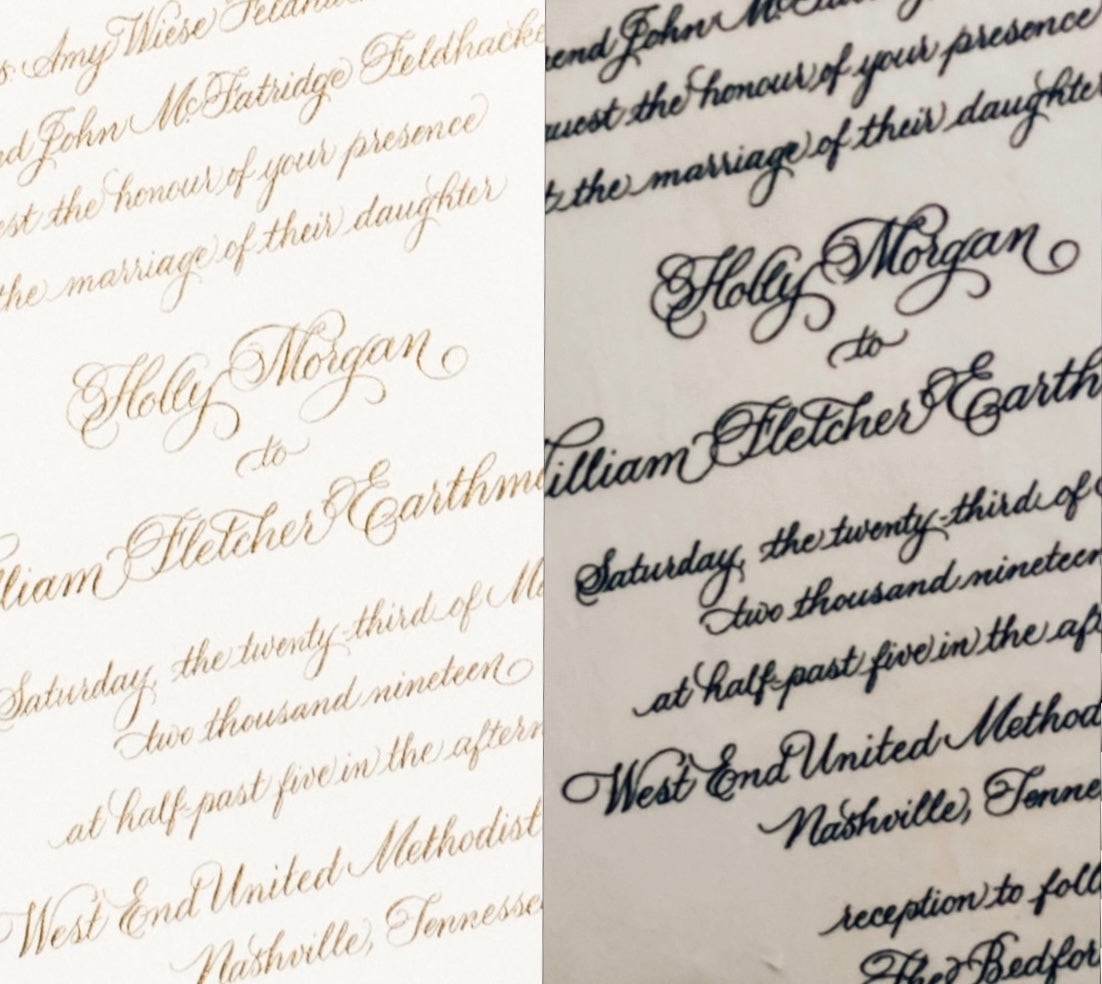 Amy Wiese
John McFatridge Feldhacke
the honour of your presence
the marriage of their daughter
Holly Morgan
to
lliam Fletcher Earthm
Saturday, the twenty-third of M
two thousand nineteen
at half-past five in the aftern
West End United Methodist
Nashville, Tennesse
end John
quest the honour of your presence
the marriage of their daughter
Holly Morgan
to
illiam Fletcher Earth
Saturday, the twenty-third of
two thousand nineteen
at half-past five in the aft
West End United Method
Nashville, Tenne
reception to foll
The Bedfor